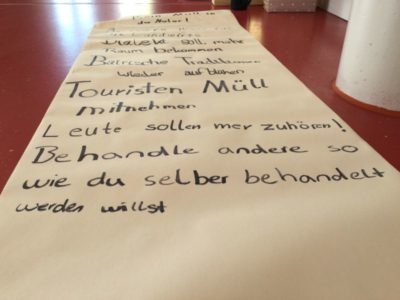 Kein Müll in
da Natur!
Dialekt soll mehr
Raum bekommen
Bairische Traditionen
wieder aufblühen
Touristen Müll
mitnehmen
Leute sollen mer zuhören!
Behandle andere so
wie du selber behandelt
werden willst